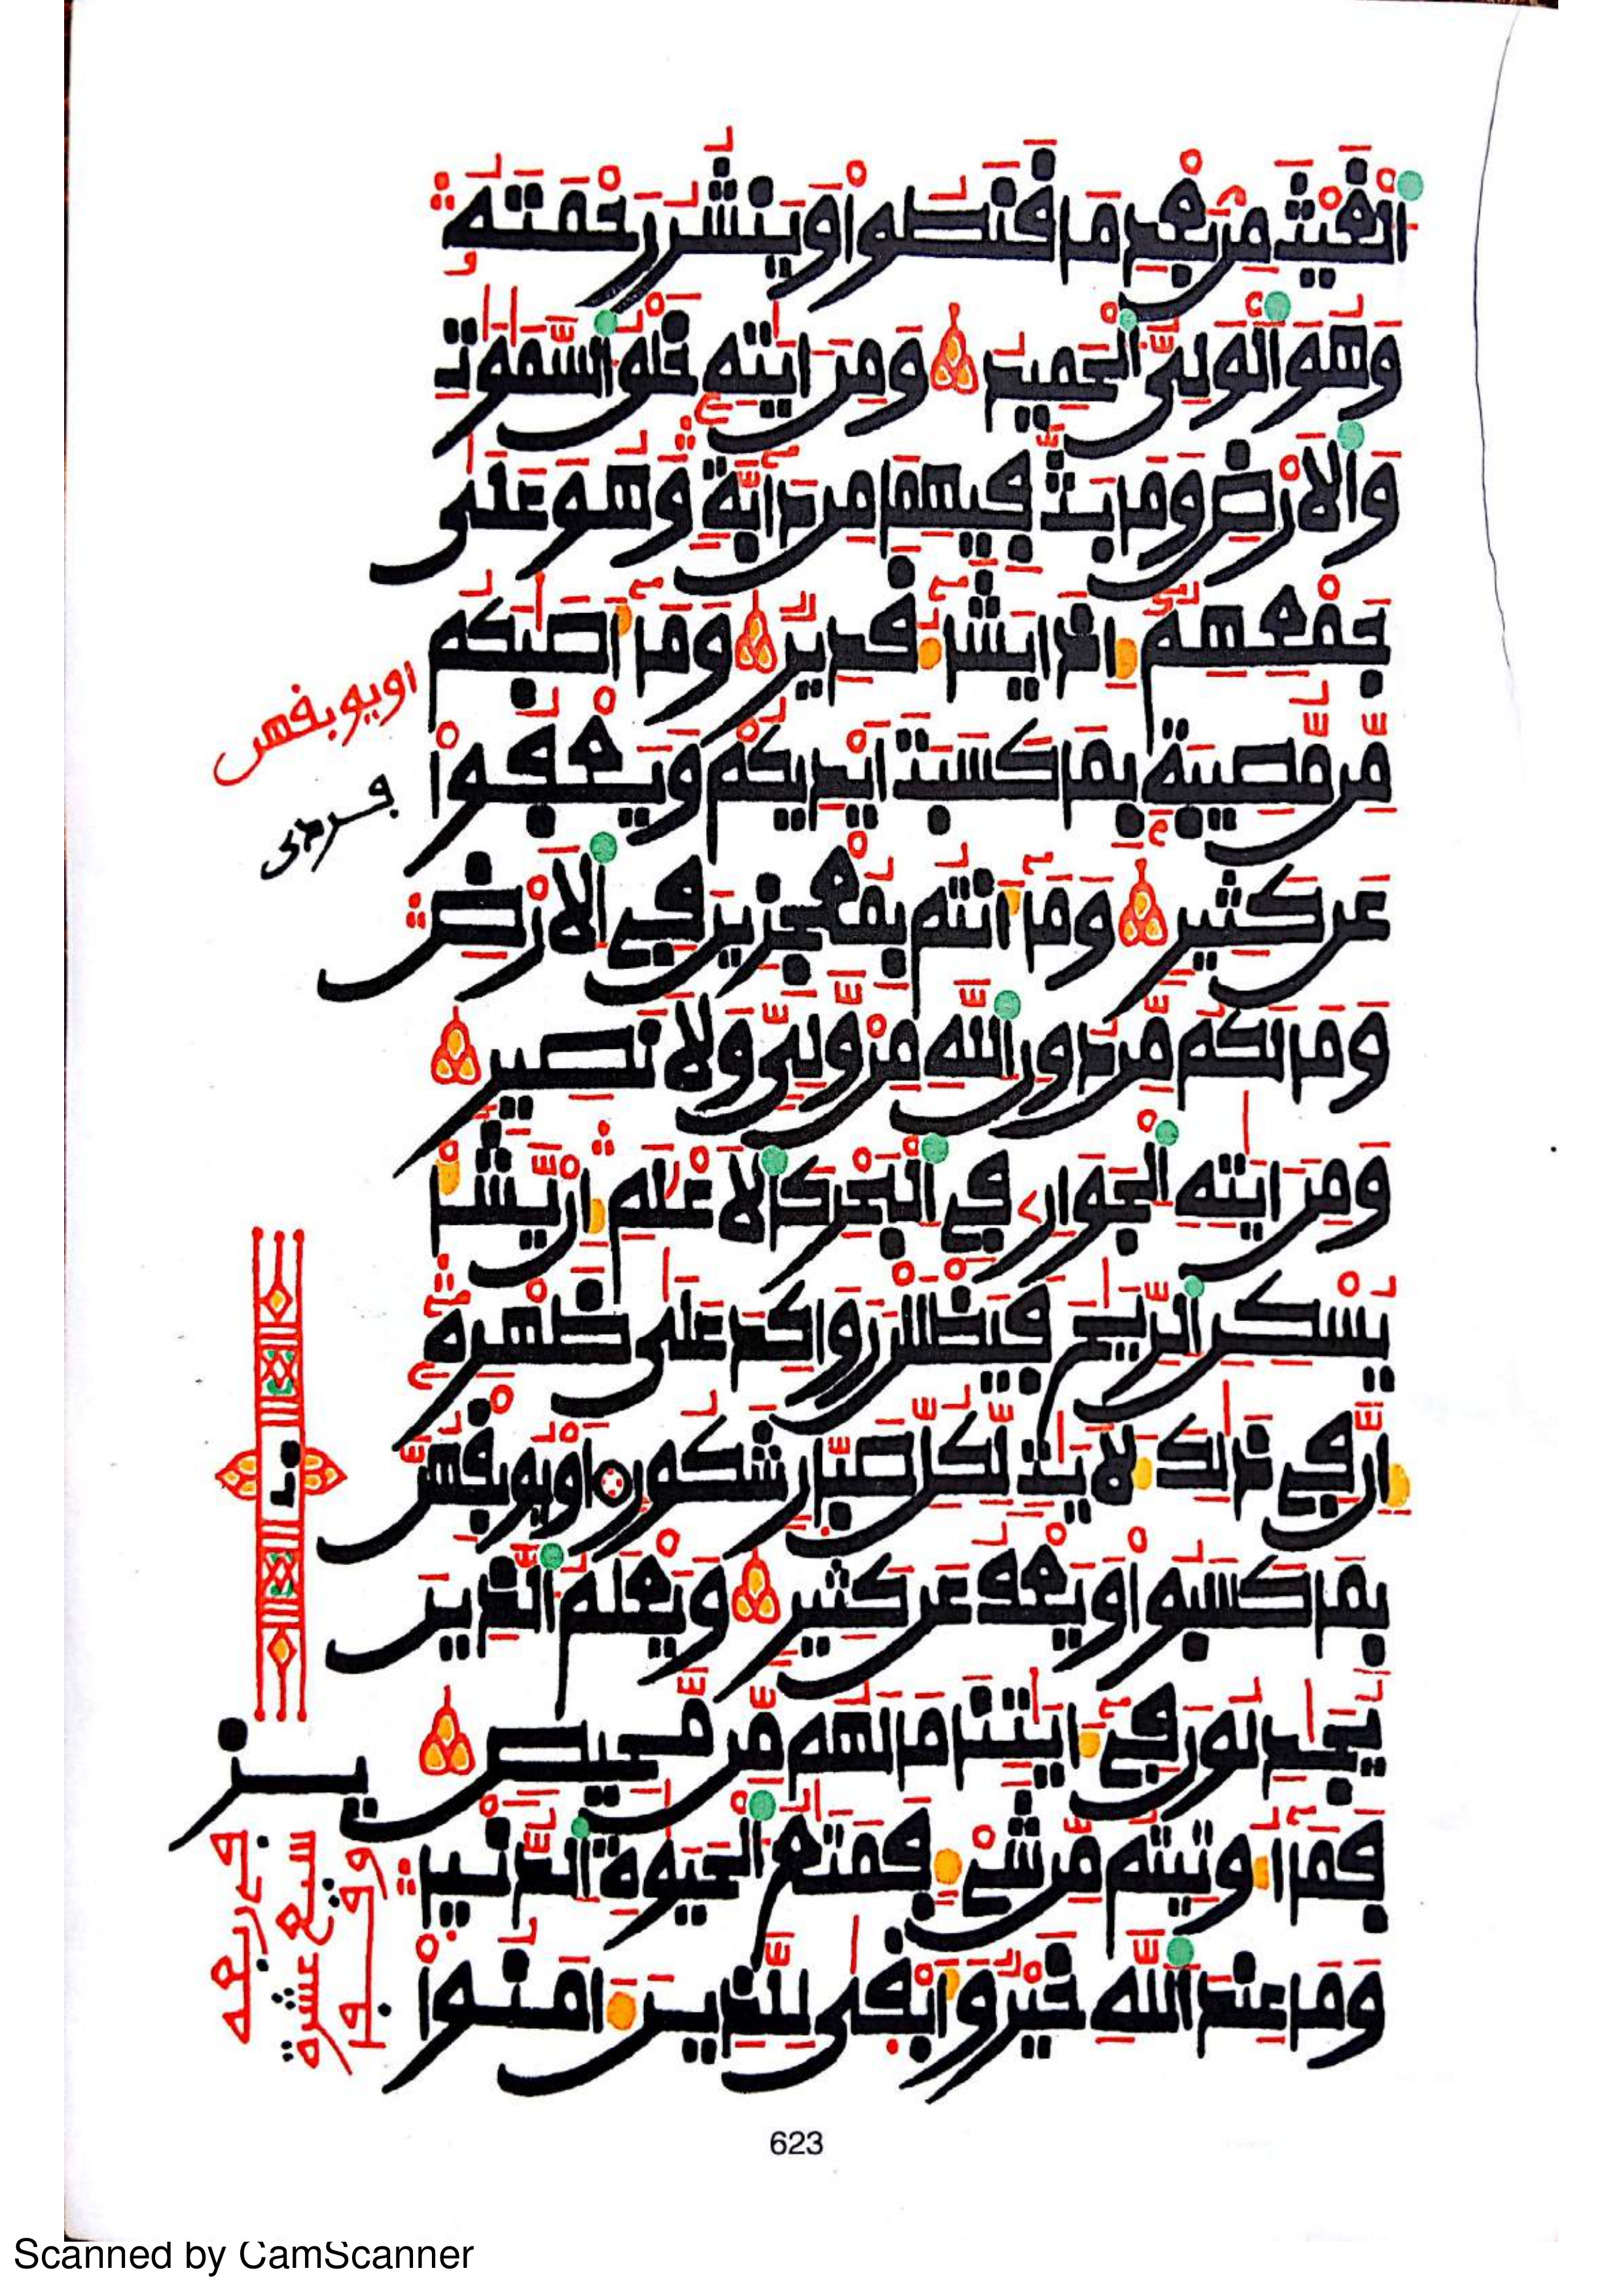 اَ۬لْغَيْثَ مِنۢ بَعْدِ مَا قَنَطُواْ وَيَنشُرُ رَحْمَتَهُۥ
وَهُوَ اَ۬لْوَلِيُّ اُ۬لْحَمِيدُ وَمِنَ ايَٰتِهِۦ خَلْقُ اُ۬لسَّمَٰوَٰتِ
وَالَارْضِ وَمَا بَثَّ فِيهِمَا مِن دَآبَّةٖ وَهُوَ عَلَىٰ
جَمْعِهِمُۥٓ إِذَا يَشَآءُ قَدِيرٞ وَمَآ أَصَٰبَكُم
مِّن مُّصِيبَةِۢ بِمَا كَسَبَتَ اَيْدِيكُمْ وَيَعْفُواْ
عَن كَثِيرٖ وَمَآ أَنتُم بِمُعْجِزِينَ فِي اِ۬لَارْضِ
وَمَا لَكُم مِّن دُونِ اِ۬للَّهِ مِنْ وَّلِيّٖ وَلَا نَصِيرٖ
وَمِنَ ايَٰتِهِ اِ۬لْجَوَارِۦ فِي اِ۬لْبَحْرِ كَالَاعْلَٰمِ إِنْ يَّشَأْ
يُسْكِنِ اِ۬لرِّيَٰحَ فَيَظْلَلْنَ رَوَاكِدَ عَلَىٰ ظَهْرِهِۦٓ
إِنَّ فِي ذَٰلِكَ لَأٓيَٰتٖ لِّكُلِّ صَبّارٖ شَكُورٍ اَوْ يُوبِقْهُنَّ
بِمَا كَسَبُواْ وَيَعْفُ عَن كَثِيرٖ وَيَعْلَمُ اُ۬لذِينَ
يُجَٰدِلُونَ فِيٓ ءَايَٰتِنَا مَا لَهُم مِّن مَّحِيصٖ
فَمَآ أُوتِيتُم مِّن شَےْءٖ فَمَتَٰعُ اُ۬لْحَيَوٰةِ اِ۬لدُّنْيا
وَمَا عِندَ اَ۬للَّهِ خَيْرٞ وَأَبْقَىٰ لِلذِينَ ءَامَنُواْ
اويوبفهن
623
Scanned by CamScanner